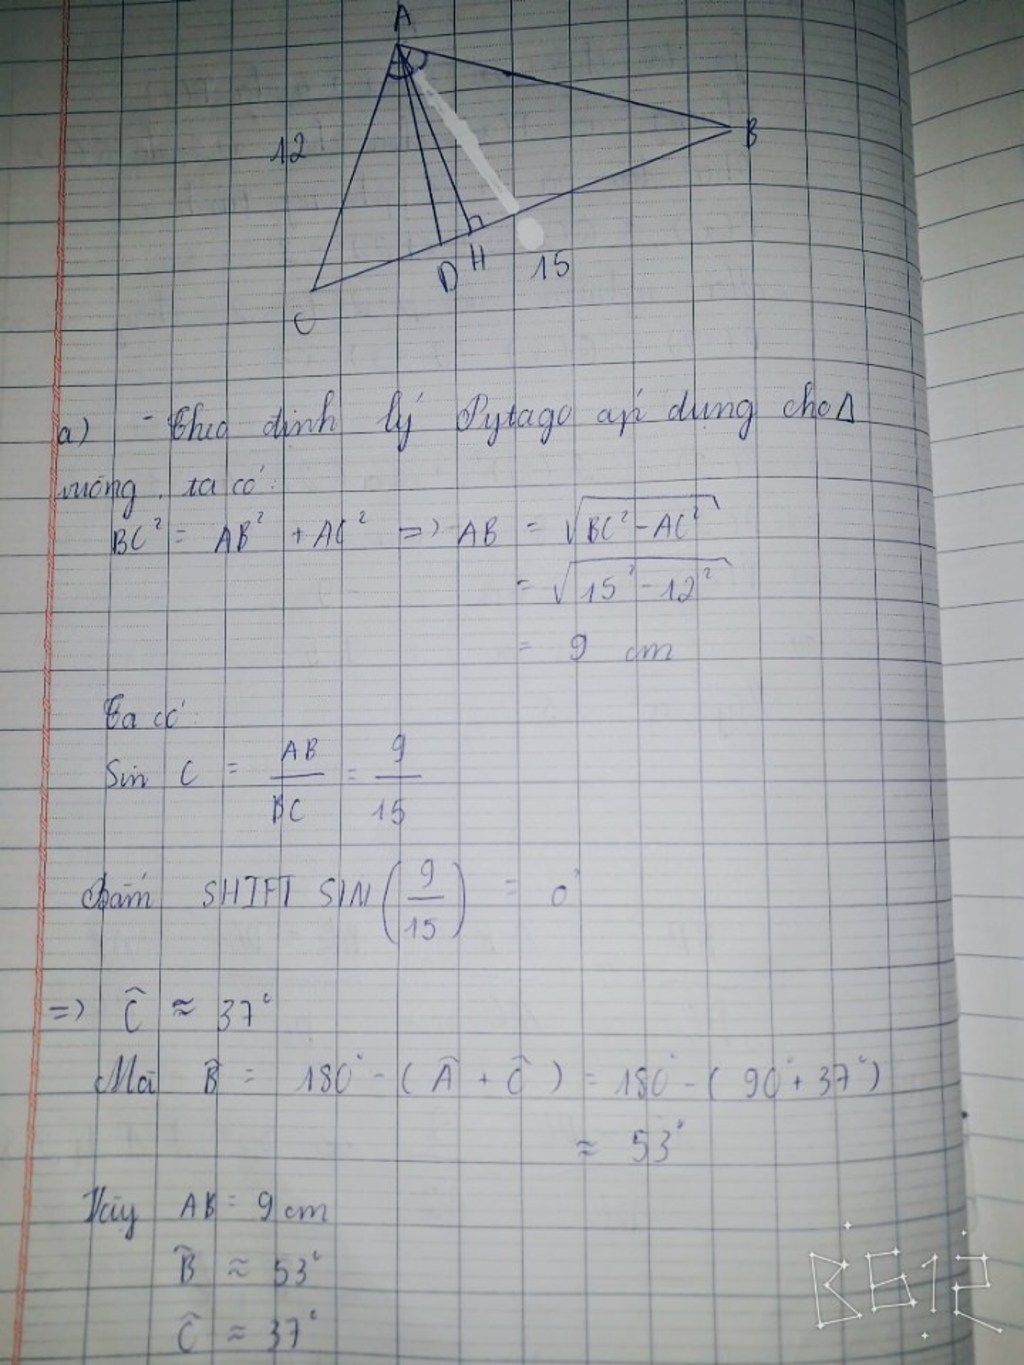 A
12
B
D H 15
C
a) - Theo định lý Pytago áp dụng cho Δ
vuông, ta có:
BC² = AB² + AC² => AB = √BC² - AC²
= √15² - 12²
= 9 cm
Ta có:
Sin C = AB/BC = 9/15
SHIFT SIN (9/15) = 0'
=> Ĉ ≈ 37°
Mà B̂ = 180° - (Â + Ĉ) = 180° - (90° + 37°)
≈ 53°
Vậy AB = 9 cm
B̂ ≈ 53°
Ĉ ≈ 37°
B612